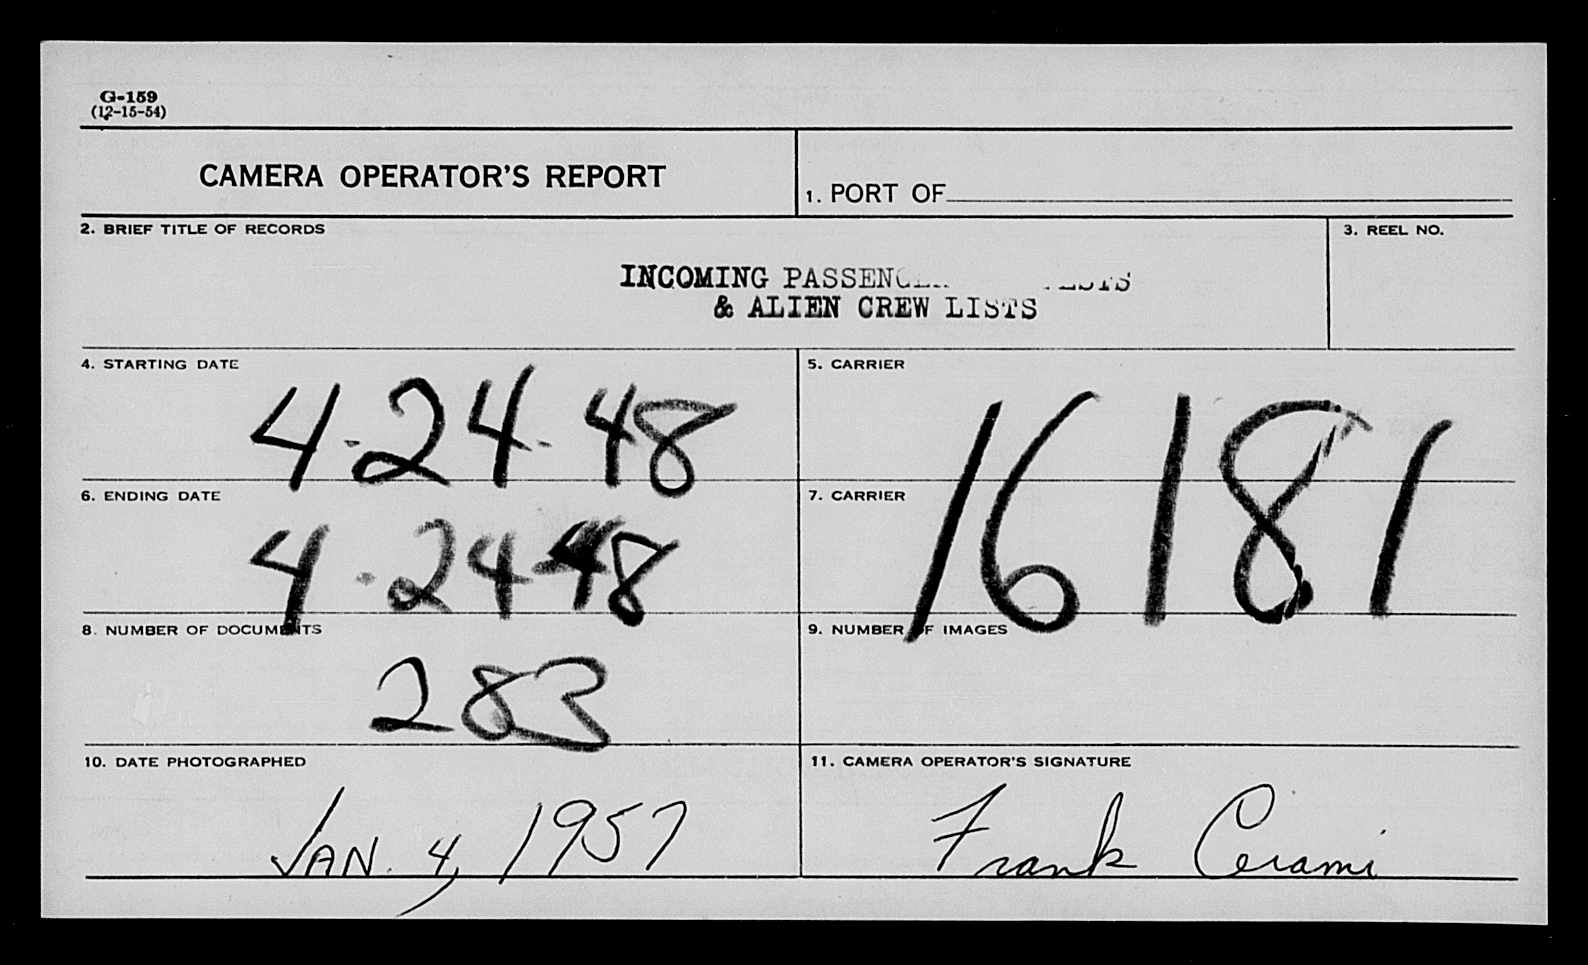 G-159
(12-15-54)
CAMERA OPERATOR'S REPORT
1. PORT OF
2. BRIEF TITLE OF RECORDS
3. REEL NO.
INCOMING
& ALIEN CREW LISTS
4. STARTING DATE
4-24-48
5. CARRIER
16181
6. ENDING DATE
4-24-48
7. CARRIER
8. NUMBER OF DOCUMENTS
283
9. NUMBER OF IMAGES
10. DATE PHOTOGRAPHED
JAN. 4, 1957
11. CAMERA OPERATOR'S SIGNATURE
Frank Cerami